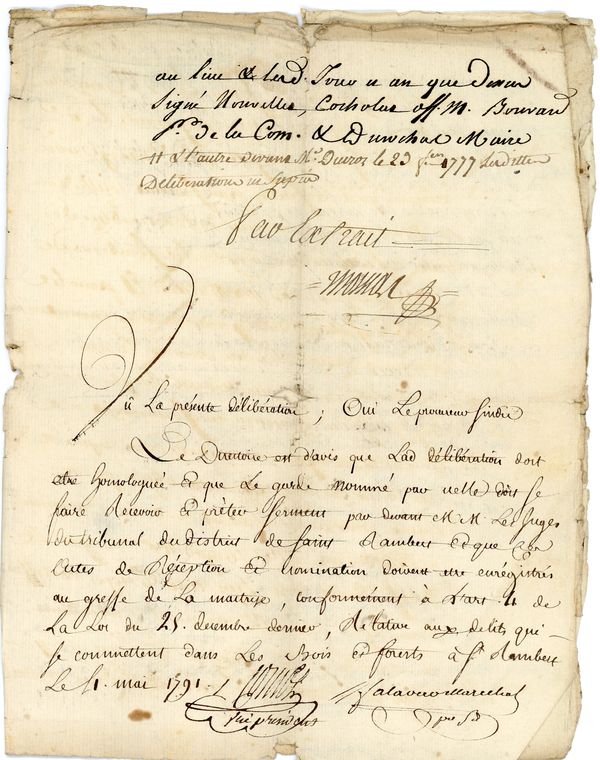 au lieu & lesd. Jour et an que dessus
Signé Nouvellet, Cocholat off. M. Bouvard
Pr. de la Com. & Durochat Maire
& l'autre devant Me. Ducros le 23 1777
Deliberation
Par Extrait
Vû La présente délibération, Oui Le procureur sindic
Le Directoire est d'avis que Lad délibération doit
etre homologuée et que Le garde nommé par icelle doit se
faire Recevoir et prêter serment par devant M.M. Les Juges
du tribunal du district de saint Rambert et que Les
Actes de Réception et nomination doivent etre enrégistrés
au greffe de La maitrise, conformement à L'art. 4 de
La Loi du 25. decembre dernier, Relative aux délits qui
se commettent dans Les Bois et forêts à St. Rambert
Le 11. mai 1791.
vice président